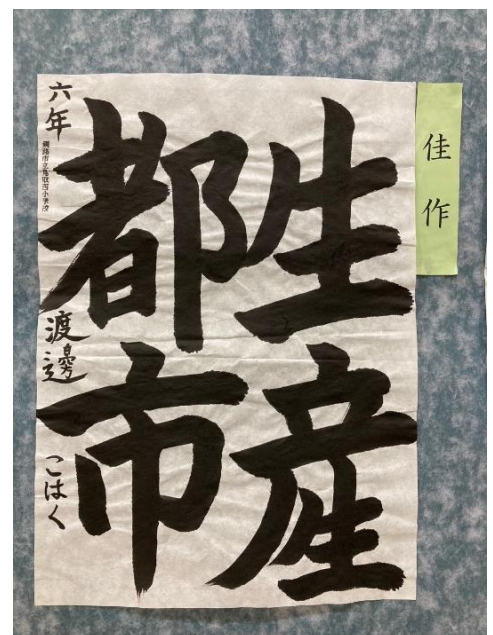 佳作
生産
都市
六年
釧路市立鳥取西小学校
渡邊こはく